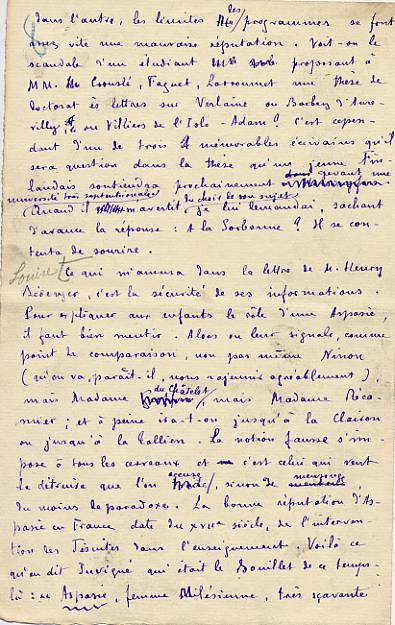 dans l'autre, les limites des programmes se font
assez vite une mauvaise réputation. Voit-on le
scandale d'un étudiant proposant à
MM. Crouslé, Faguet, Larroumet une thèse de
doctorat ès lettres sur Verlaine ou Barbey d'Aure-
villy, ou Villiers de l'Isle-Adam? C'est cepen-
dant d'un de trois mémorables écrivains qu'il
sera question dans la thèse qu'un jeune Fin-
landais soutiendra prochainement devant une
université très septentrionale. du choix de son sujet,
Quand il m'avertit je lui demandai, sachant
d'avance la réponse : à la Sorbonne? Il se con-
tenta de sourire.
Louise
Ce qui m'amusa dans la lettre de M. Henry
Bérenger, c'est la sécurité de ses informations.
Pour expliquer aux enfants le rôle d'une Aspasie,
il faut bien mentir. Alors on leur signale, comme
point de comparaison, non pas même Ninon
(qu'on va, paraît-il, nous rajeunir agréablement),
mais Madame du Châtelet, mais Madame Réca-
mier; et à peine ira-t-on jusqu'à la Clairon
ou jusqu'à la Tallien. La notion fausse s'im-
pose à tous les cerveaux et c'est celui qui veut
la détruire que l'on accuse, sinon de mensonge,
du moins de paradoxe. La bonne réputation d'As-
pasie en France date du XVIIe siècle, de l'interven-
tion des Jésuites dans l'enseignement. Voilà ce
qu'en dit Juvigné qui était le Bouillet de ce temps-
là : « Aspasie, femme Milésienne, très sçavante